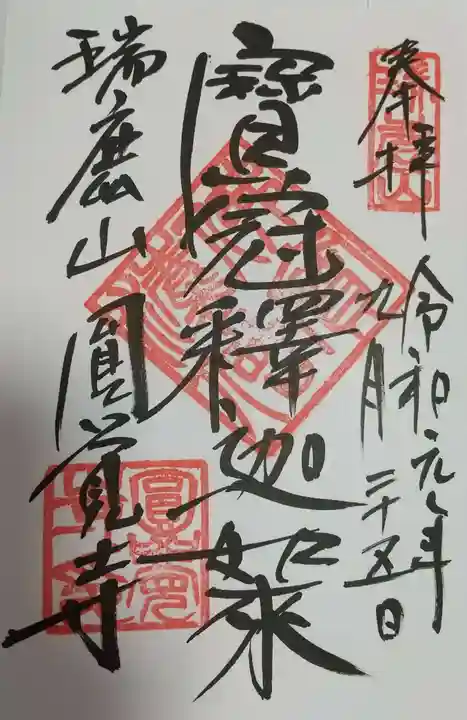 奉拝
令和元年
九月二十五日
寶冠釋迦如来
瑞鹿山 圓覚寺